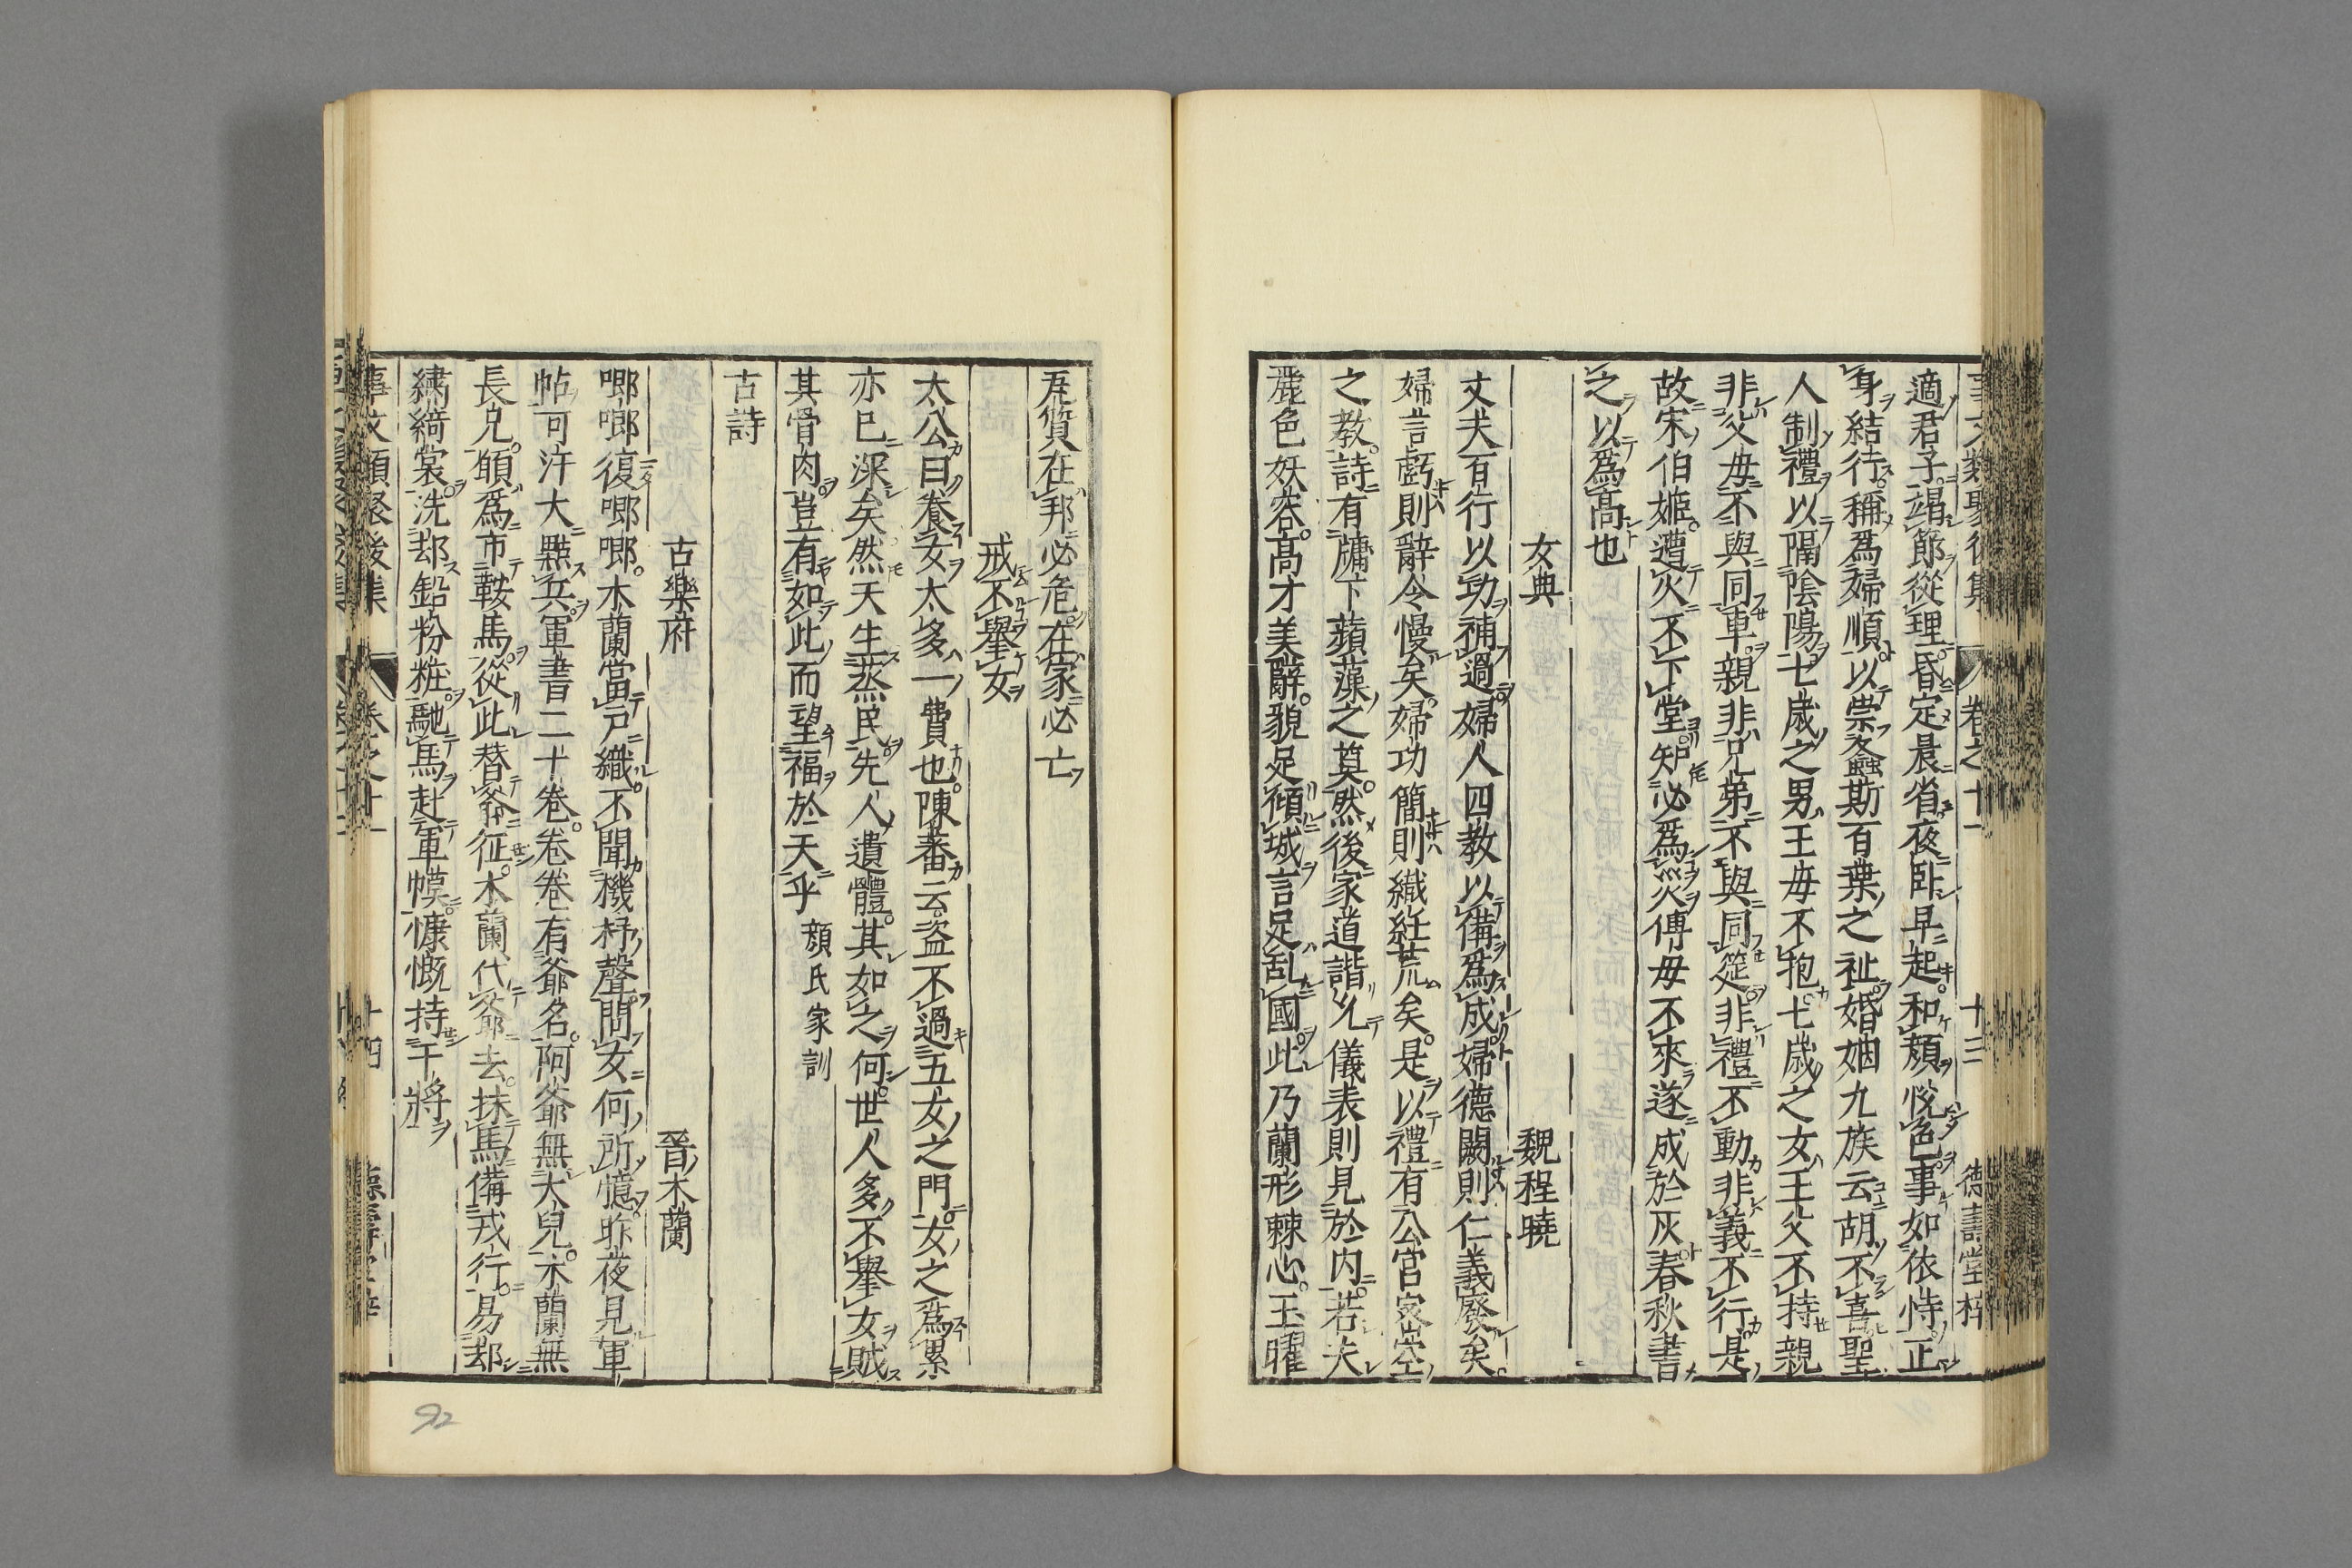 適君子竭節從理昏定晨省夜臥早起和顔悅色事如依恃正
身結行稱爲婦順以崇螽斯百葉之祉婚姻九族云胡不喜聖
人制禮以隔陰陽七歳之男王母不抱七歳之女王父不持親
非父母不與同車親非兄弟不與同筵非禮不動非義不行是
故宋伯姬遭火不下堂知必爲災傅母不來遂成於灰春秋書
之以爲高也
女典 魏程曉
丈夫百行以功補過婦人四教以備爲成婦德闕則仁義廢矣
婦言虧則辭令慢矣婦功簡則織紝荒矣是以禮有公宮家室
之教詩有牖下蘋藻之奠然後家道諧允儀表則見於内若夫
麗色妖容高才美辭貌足傾城言足乱國此乃蘭形棘心玉曜
瓦質在邦必危在家必亡
戒不擧女
太公曰養女太多一費也陳蕃云盗不過五女之門女之爲累
亦已深矣然天生蒸民先人遺體其如之何世人多不擧女賊
其骨肉豈有如此而望福於天乎 顔氏家訓
古詩
古樂府 晉木蘭
唧唧復唧唧木蘭當戸織不聞機杼聲問女何所憶昨夜見軍
帖可汗大點兵軍書二十卷卷卷有爺名阿爺無大兒木蘭無
長兄願爲市鞍馬從此替爺征木蘭代爺去抹馬備戎行易却
繍綺裳洗却鉛粉粧馳馬赴軍幕慷慨持干將
事文類聚後集 卷之十一 十四
92